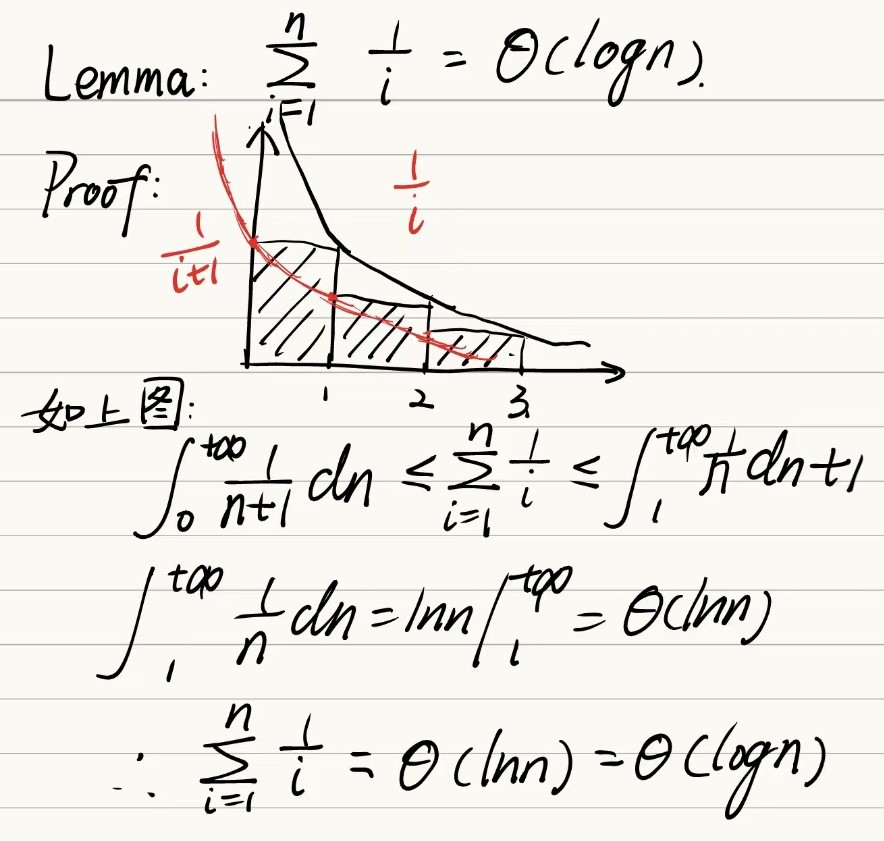 Lemma: \sum_{i=1}^{n} \frac{1}{i} = Θ(logn).
Proof:
\frac{1}{i}
\frac{1}{i+1}
1 2 3
如上图:
\int_{0}^{+∞} \frac{1}{n+1} dn ≤ \sum_{i=1}^{n} \frac{1}{i} ≤ \int_{1}^{+∞} \frac{1}{n} dn+1
\int_{1}^{+∞} \frac{1}{n} dn = lnn |_{1}^{+∞} = Θ(lnn)
∴ \sum_{i=1}^{n} \frac{1}{i} = Θ(lnn) = Θ(logn)